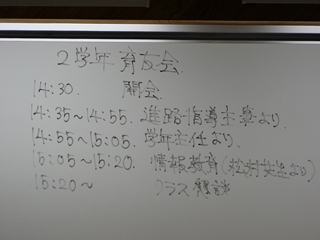 2学年 育友会
14:30. 開会
14:35~14:55. 進路指導主事より.
14:55~15:05. 学年主任より.
15:05~15:20. 情報教育(松村先生より)
15:20~ クラス懇談